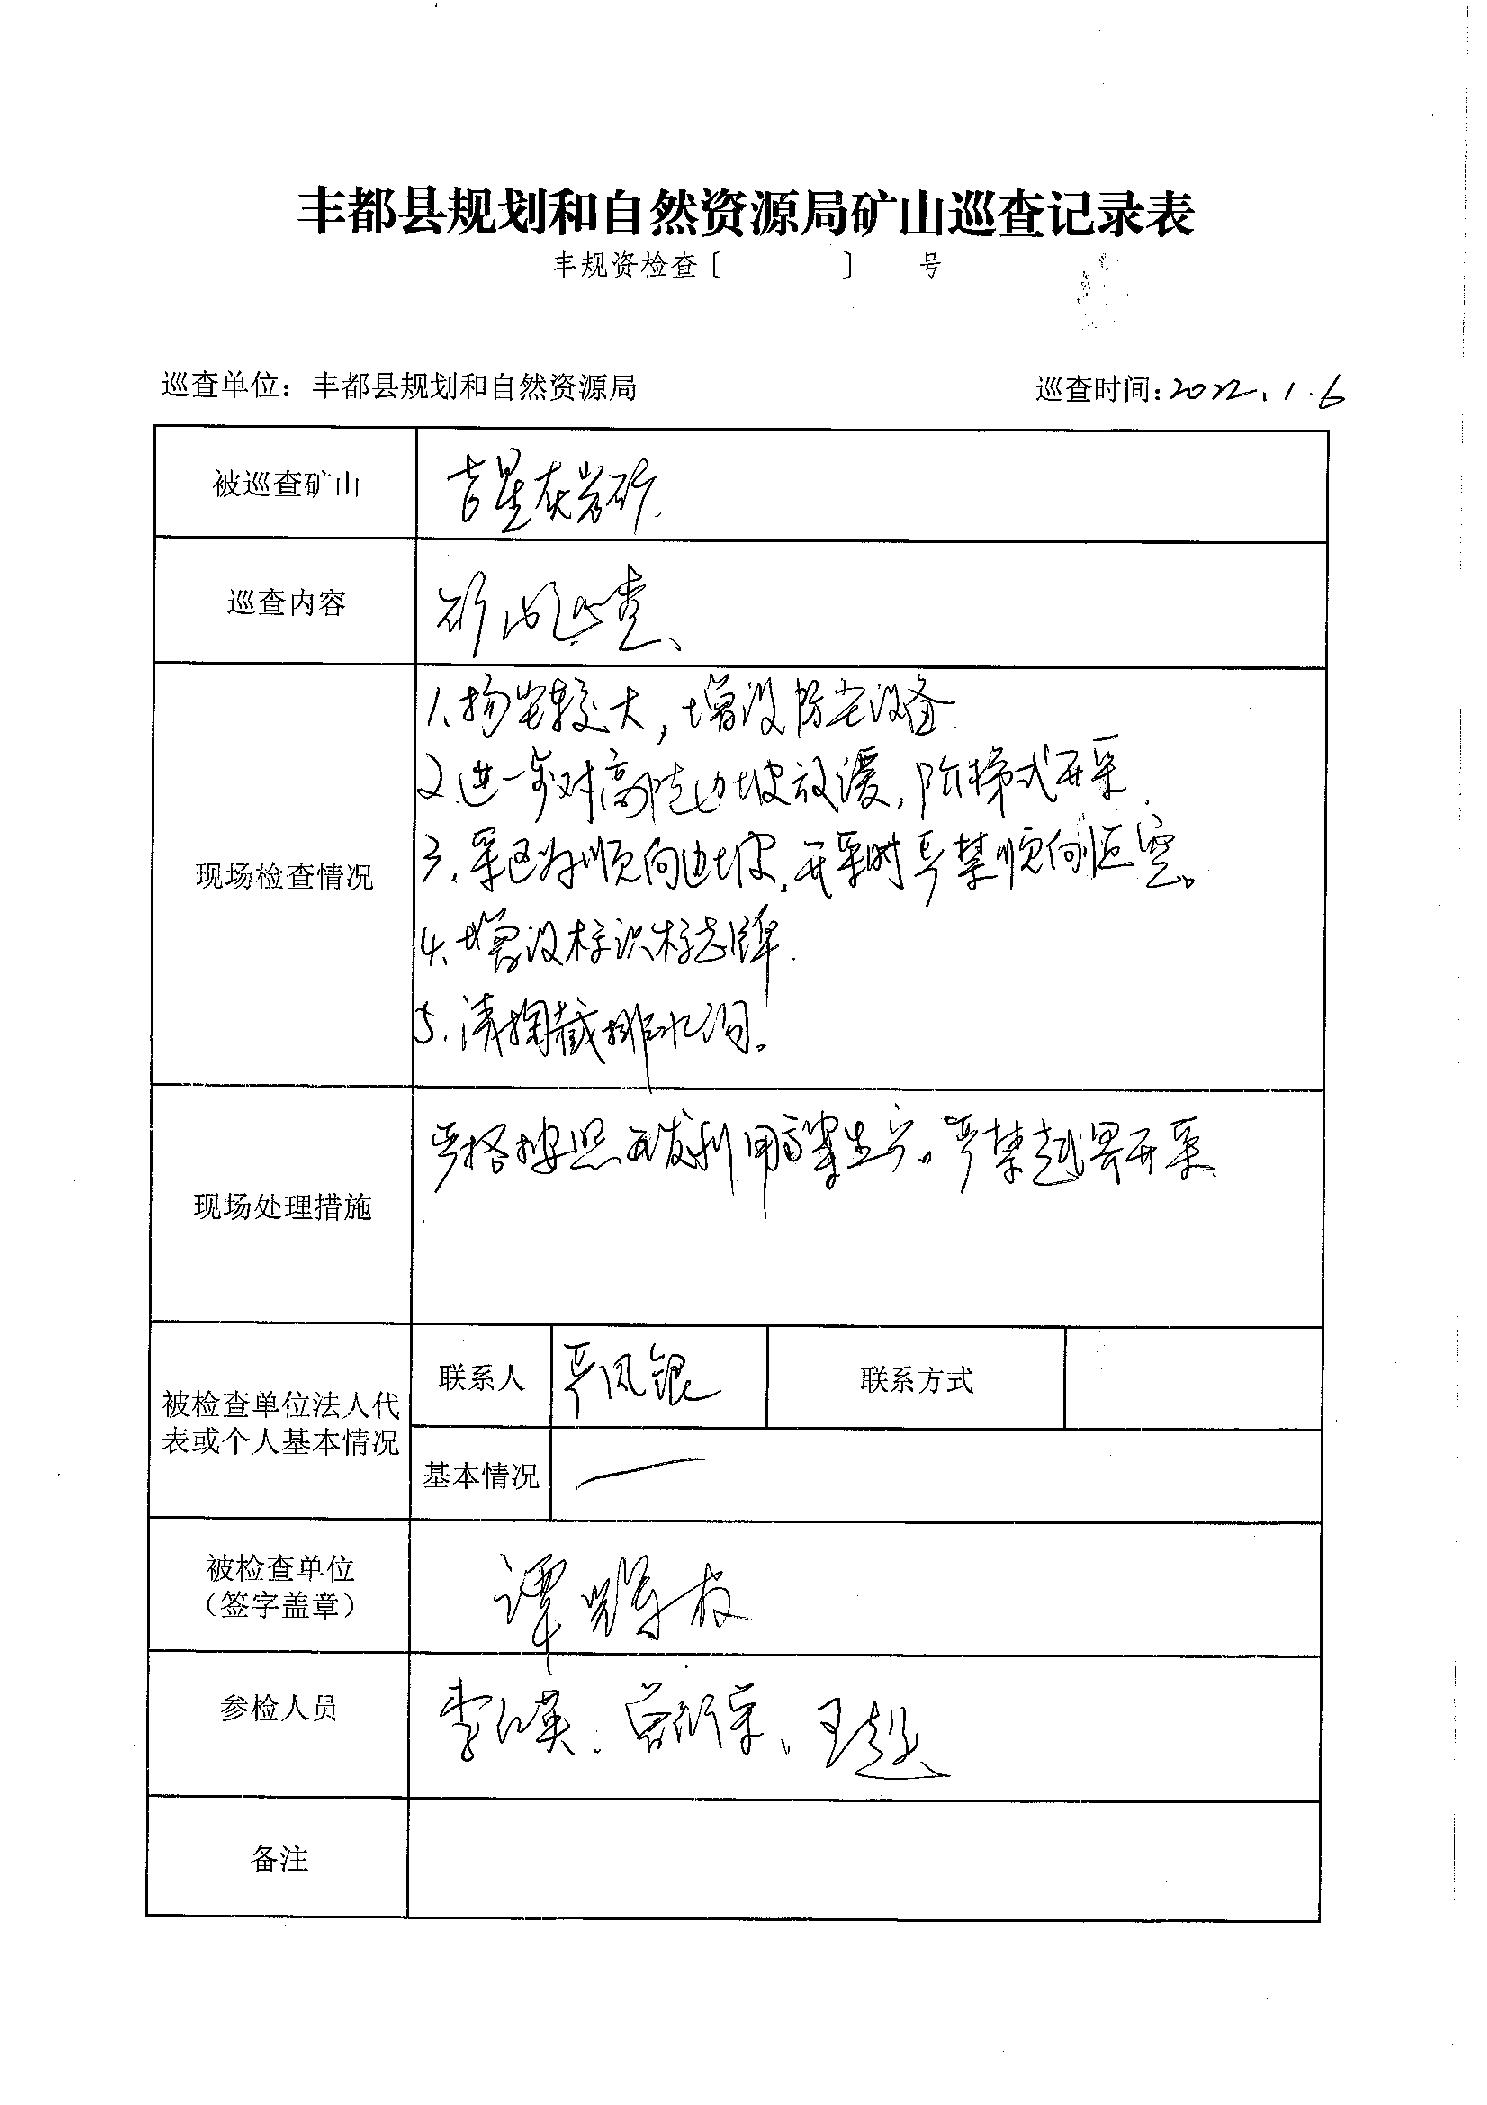 丰都县规划和自然资源局矿山巡查记录表
丰规资检查〔 〕 号
巡查单位：丰都县规划和自然资源局 巡查时间：2022.1.6
被巡查矿山 吉星灰岩矿.
巡查内容 矿山巡查、
现场检查情况
1.扬尘较大，增设防尘设备
2.进一步对高陡边坡放缓，阶梯式开采.
3.采区为顺向边坡，开采时严禁顺向临空。
4.增设标识标志牌.
5.清掏截排水沟。
现场处理措施
严格按照开发利用方案生产。严禁越界开采
被检查单位法人代
表或个人基本情况
联系人 严凤银 联系方式
基本情况 一
被检查单位
（签字盖章）
谭
参检人员 李红英、王超
备注